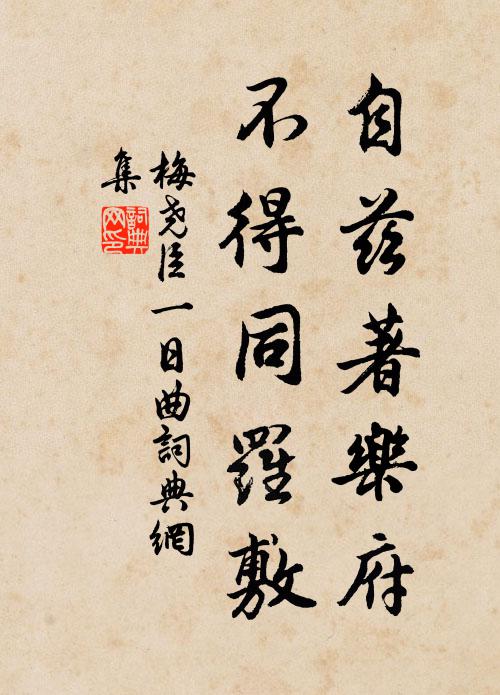 自茲著樂府
不得同羅敷
梅堯臣一日曲詞典網
集
詞典
网印